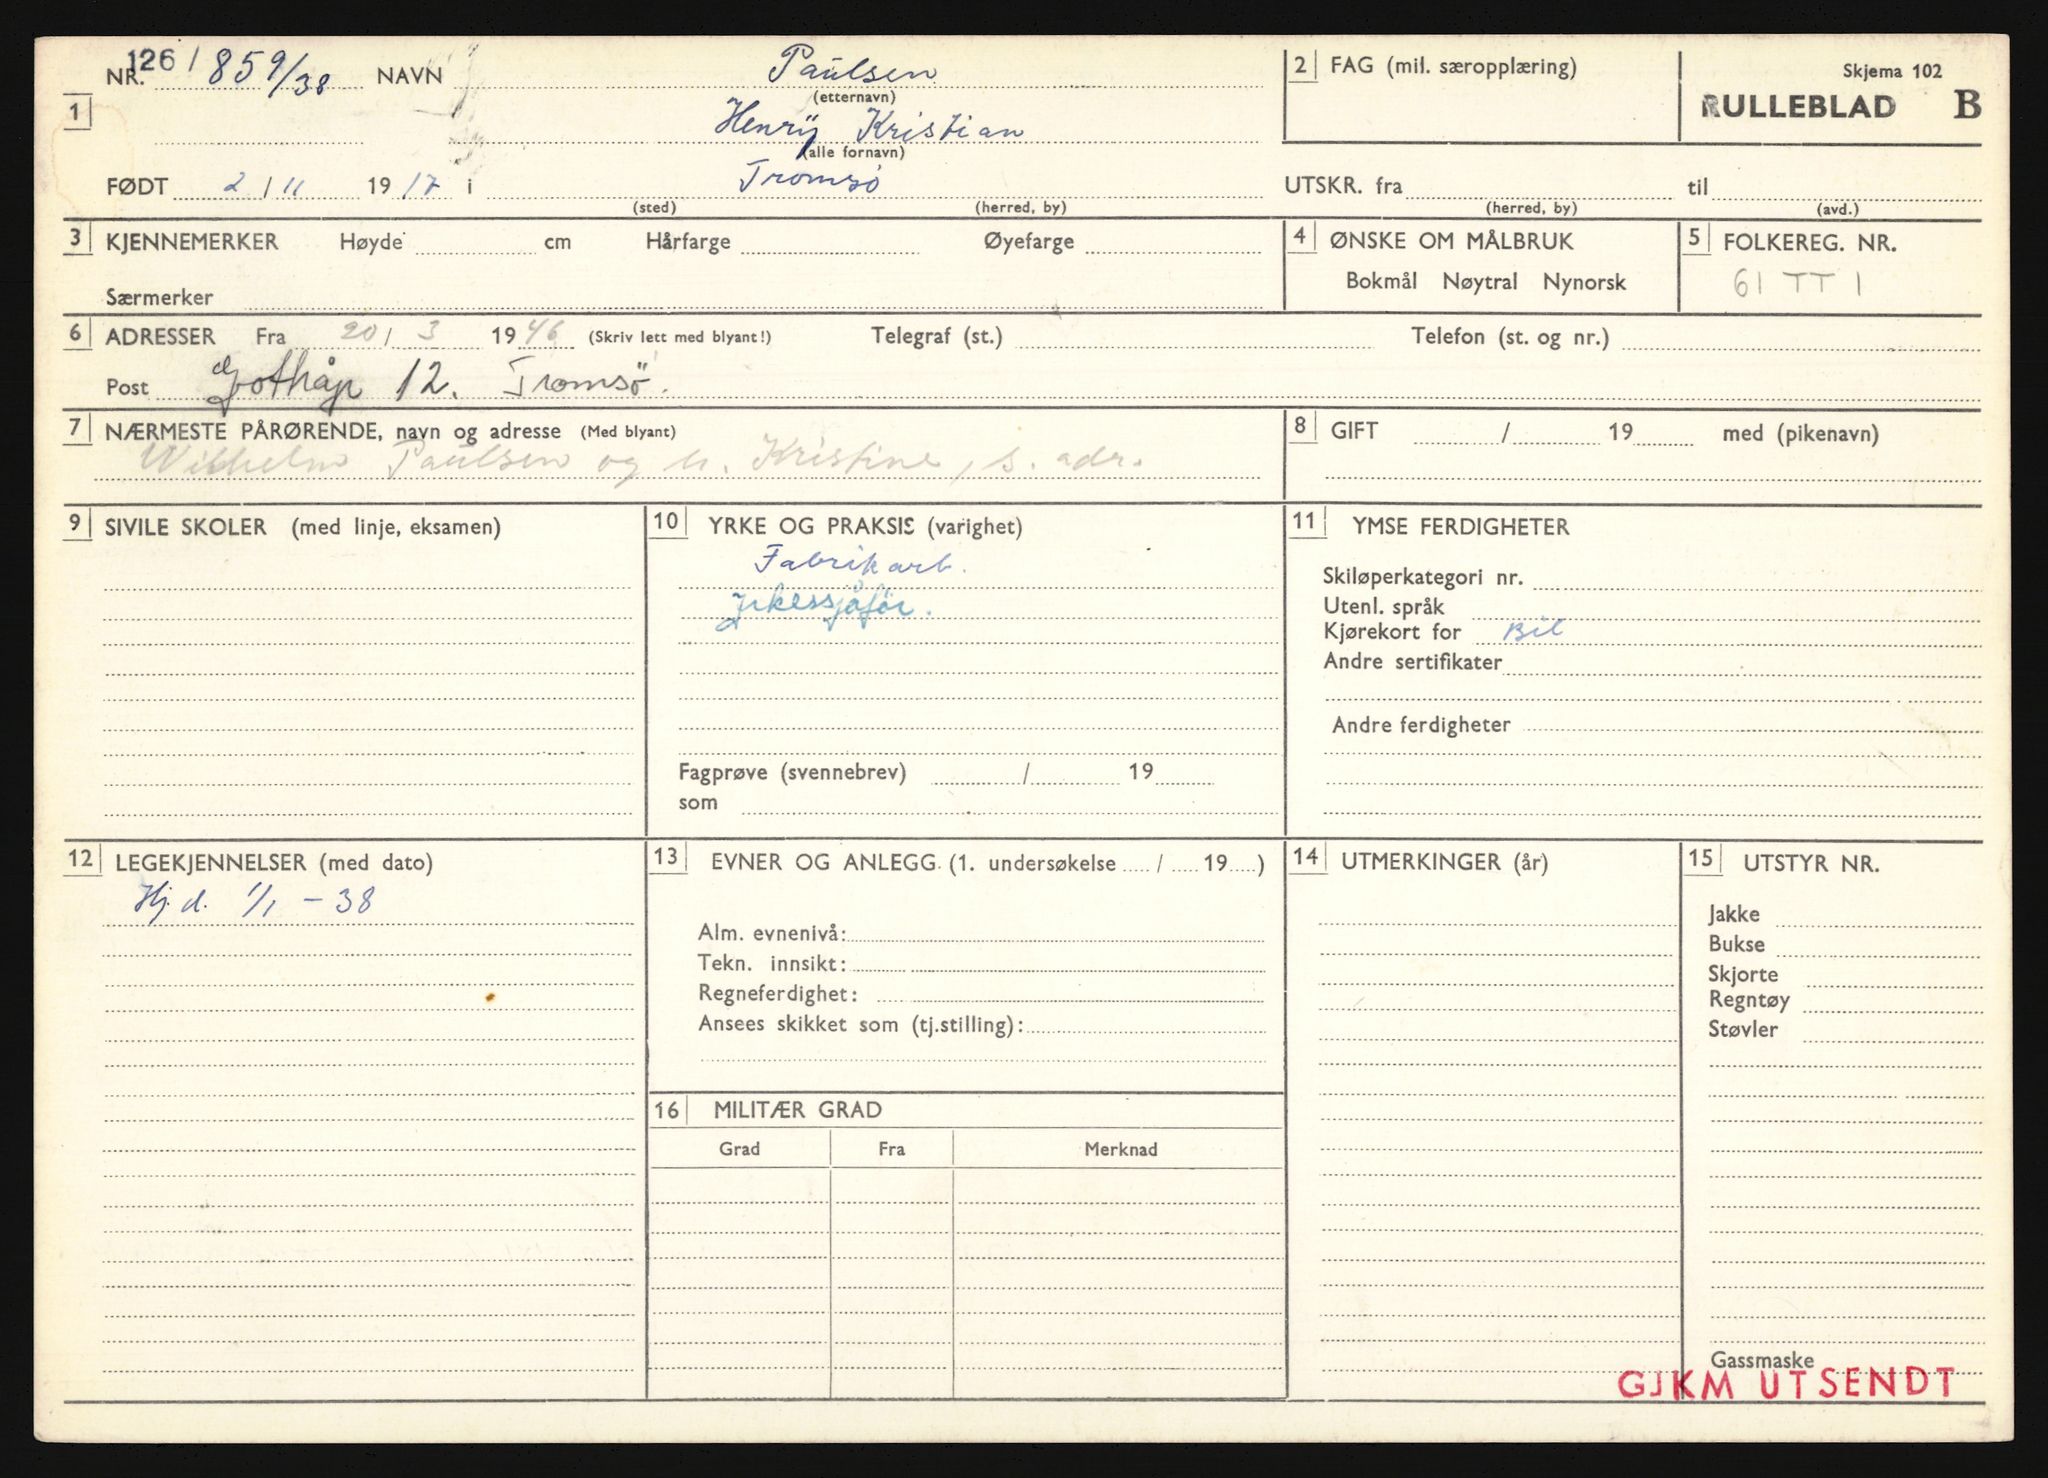 NR. 126 / 859/38 NAVN Paulsen
(etternavn)
1
Henry Kristian
(alle fornavn)
FØDT 2 / 11 19 17 i Tromsø
(sted) (herred, by)
2 FAG (mil. særopplæring)
Skjema 102
RULLEBLAD B
UTSKR. fra til
(herred, by) (avd.)
3 KJENNEMERKER Høyde cm Hårfarge Øyefarge
Særmerker
4 ØNSKE OM MÅLBRUK
Bokmål Nøytral Nynorsk
5 FOLKEREG. NR.
61 TT 1
6 ADRESSER Fra 20 / 3 19 46 (Skriv lett med blyant!) Telegraf (st.) Telefon (st. og nr.)
Post Gothåp 12. Tromsö.
7 NÆRMESTE PÅRØRENDE, navn og adresse (Med blyant)
Wilhelm Paulsen og h. Kristine, s. adr.
8 GIFT / 19 med (pikenavn)
9 SIVILE SKOLER (med linje, eksamen)
10 YRKE OG PRAKSIS (varighet)
Fabrikarb.
Yrkessjåför.
Fagprøve (svennebrev) / 19
som
11 YMSE FERDIGHETER
Skiløperkategori nr.
Utenl. språk
Kjørekort for Bil
Andre sertifikater
Andre ferdigheter
12 LEGEKJENNELSER (med dato)
Hj. d. 1/1 - 38
13 EVNER OG ANLEGG. (1. undersøkelse / 19 )
Alm. evnenivå:
Tekn. innsikt:
Regneferdighet:
Ansees skikket som (tj.stilling):
14 UTMERKINGER (år)
15 UTSTYR NR.
Jakke
Bukse
Skjorte
Regntøy
Støvler
Gassmaske
16 MILITÆR GRAD
Grad Fra Merknad
GJKM UTSENDT